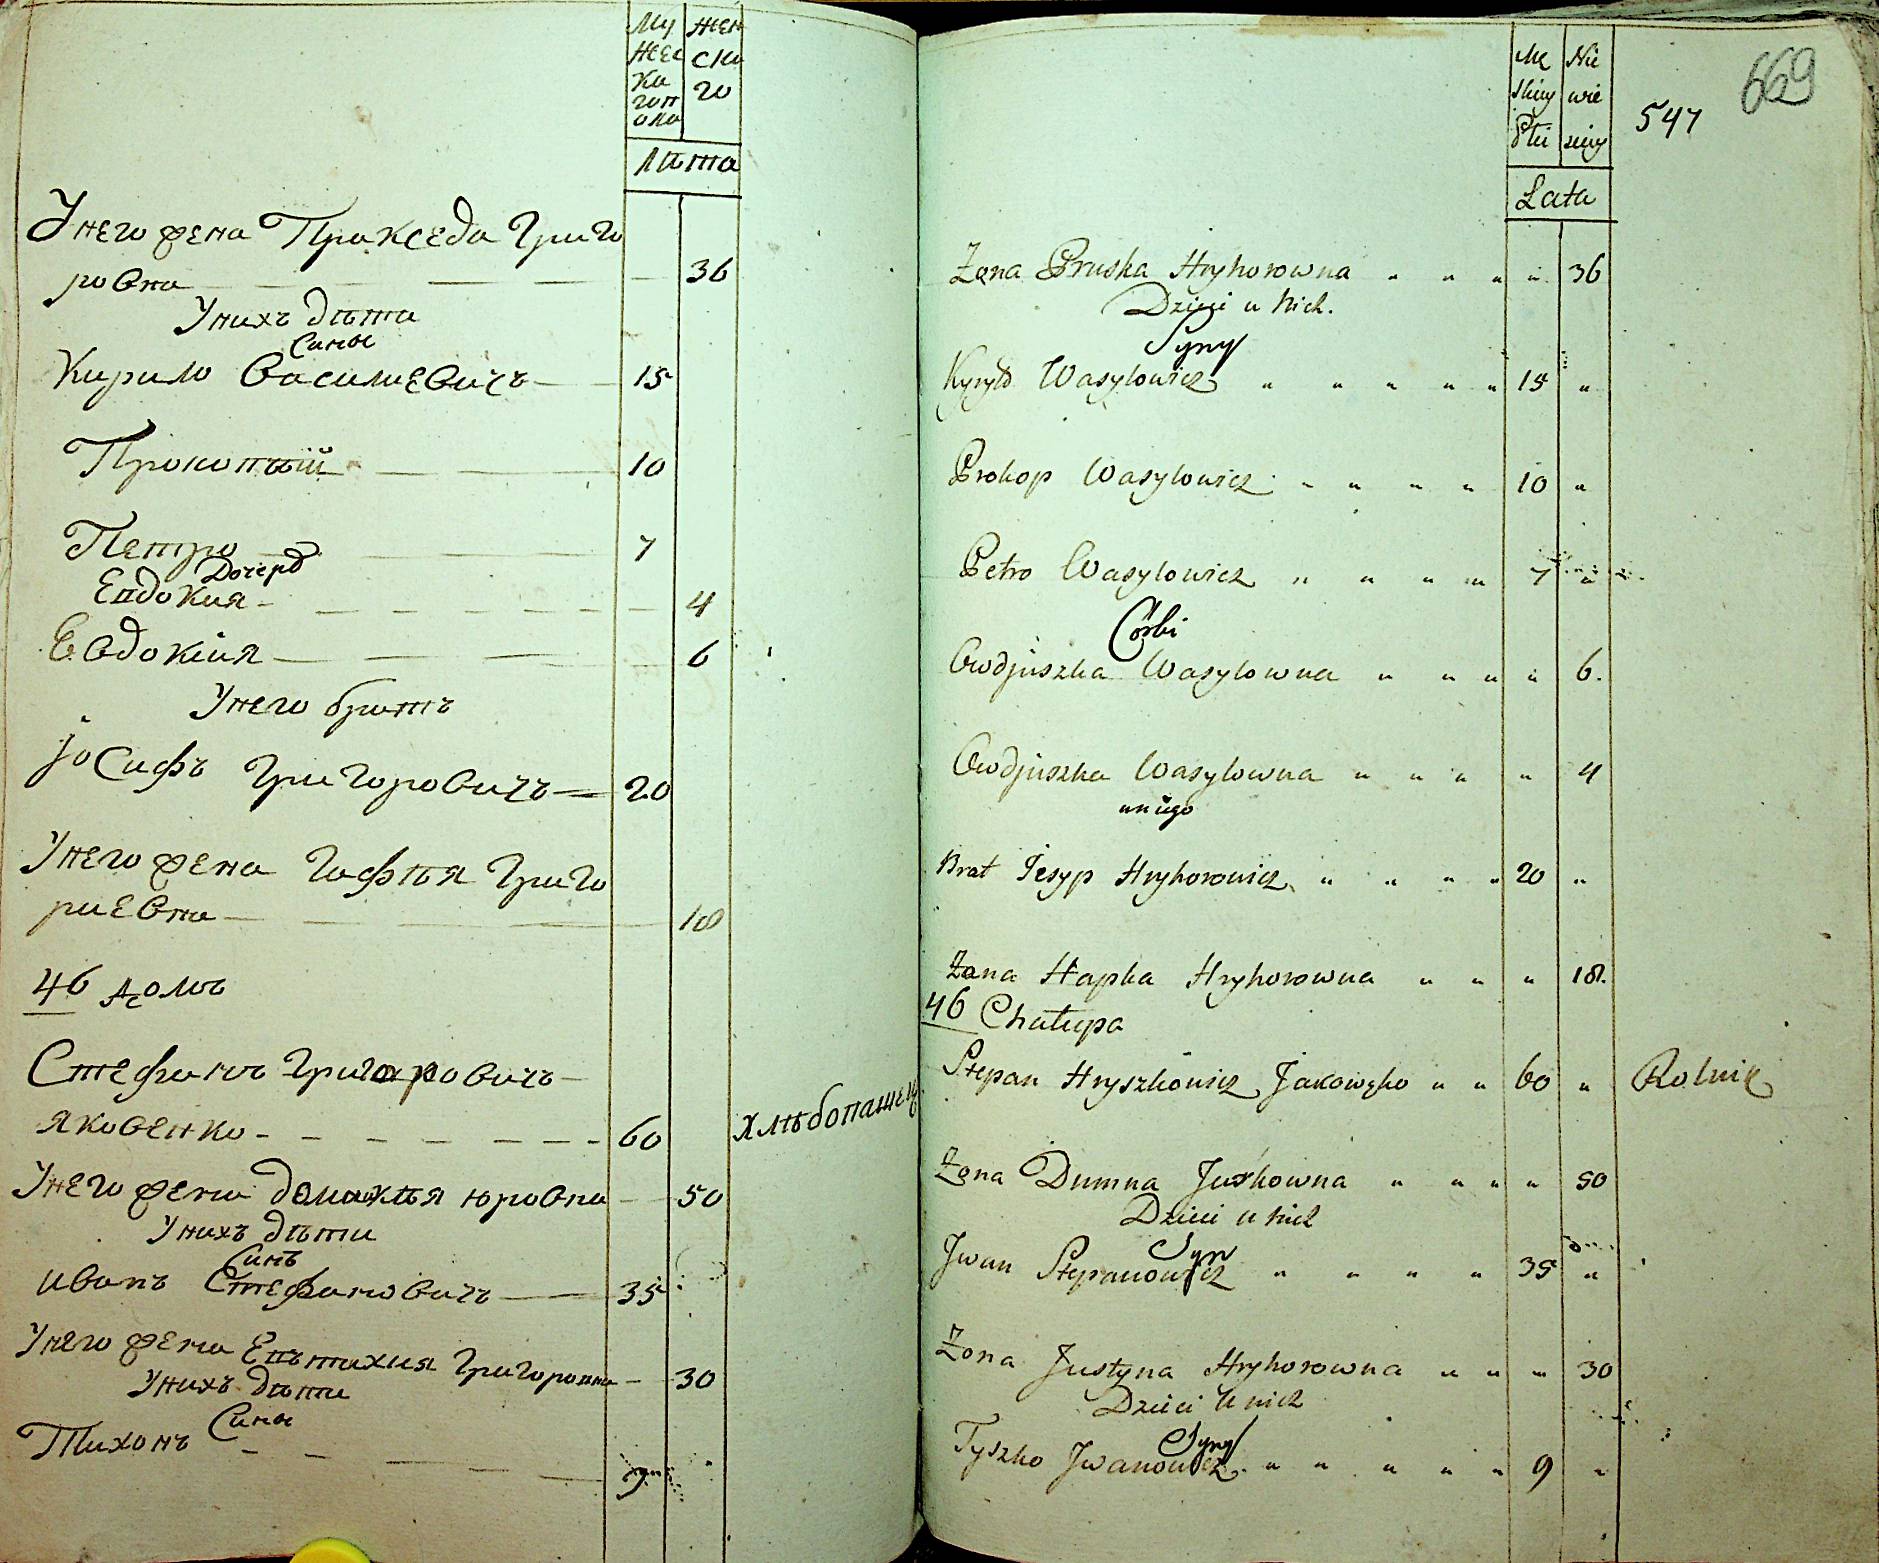 Му жес ка гоп ола
Жен ска го
Лѣта
Унего жена Пракседа Григо
ровна 36
Унихъ дѣти
Сины
Кирило Василиевичъ 15
Прокопий 10
Петро 7
Дочеръ
Евдокия 4
Евдокия 6
Унего братъ
Јосифъ Григоровичъ 20
Унего жена Гафѣя Григо
риевна 18
46 домъ
Стефанъ Григоровичъ
яковенко 60 хлѣбопашецъ
Унего жена домахѣя юровна 50
Унихъ дѣти
Синъ
иванъ Стефановичъ 35
Унего жена Евтахия Григоровна 30
Унихъ дѣти
Сины
Тихонъ 9
Mę skiey Płci
Nie wie sciey
547
669
Lata
Żona Pruska Hryhorowna " " " " 36
Dzieci u Nich.
Syny
Kyryło Wasylowicz " " " " " 15 "
Prokop Wasylowicz " " " " 10 "
Petro Wasylowicz " " " " 7 "
Córki
Owdjuszka Wasylowna " " " " 6.
Owdjuszka Wasylowna " " " " 4
u niego
Brat Jesyp Hryhorowicz " " " " 20 "
Żona Hapka Hryhorowna " " " 18.
46 Chałupa
Stepan Hryszkowicz Jakowęko " " 60 " Rolnik
Żona Dumna Jurkowna " " " " 50
Dzieci u nich
Syn
Jwan Stepanowicz " " " " 35 "
Żona Justyna Hryhorowna " " " 30
Dzieci u nich
Syny
Tyszko Jwanowicz " " " " " 9 "